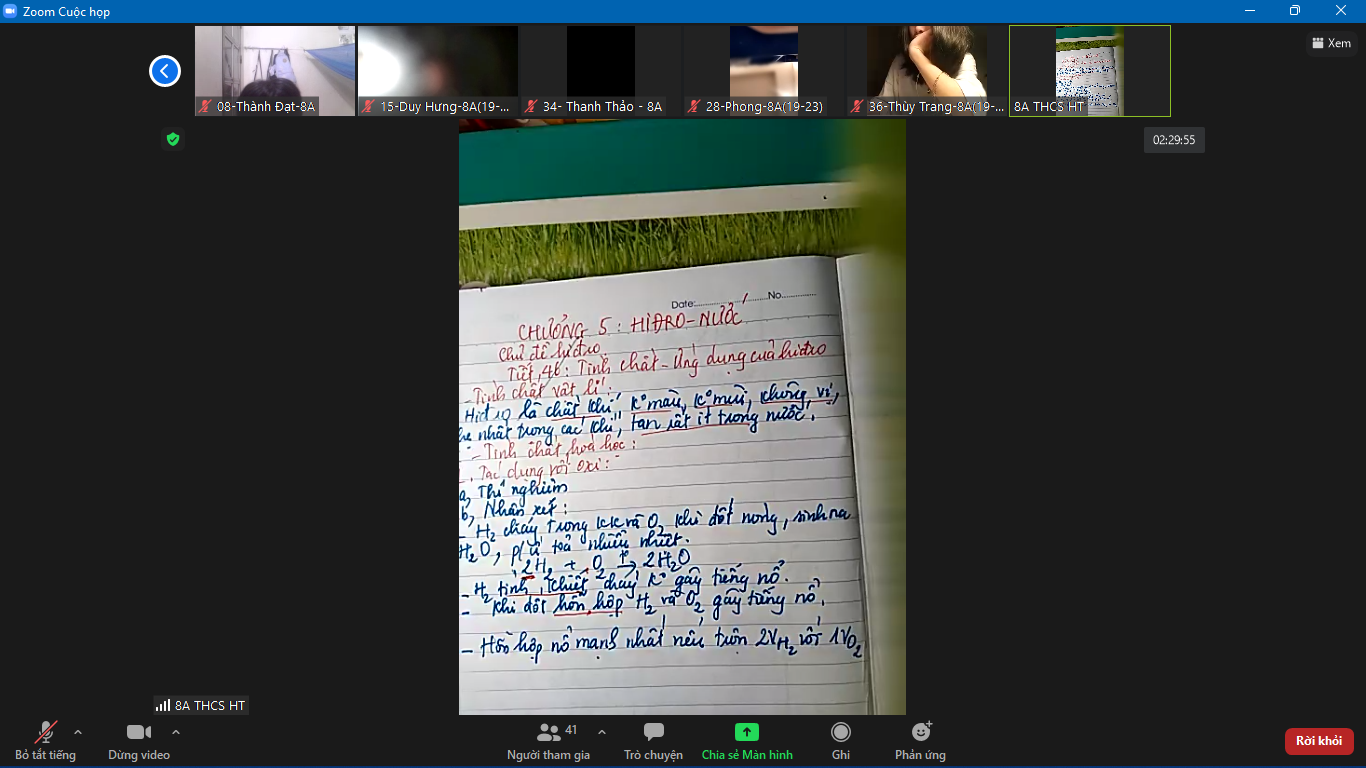 Zoom Cuộc họp
Xem
08-Thành Đạt-8A
15-Duy Hưng-8A(19-...
34- Thanh Thảo - 8A
28-Phong-8A(19-23)
36-Thùy Trang-8A(19-...
8A THCS HT
02:29:55
Date:............./........No..............
CHƯƠNG 5 : HIĐRO-NƯỚC
Chủ đề hiđro.
Tiết 46 : Tính chất - Ứng dụng của hiđro
- Tính chất vật lí :
Hiđro là chất khí, k° màu, k° mùi, không vị,
nhẹ nhất trong các khí, tan rất ít trong nước.
- Tính chất hoá học :
. Tác dụng với oxi :
a, Thí nghiệm
b, Nhận xét :
- H2 cháy trong kk và O2 khi đốt nóng, sinh ra
H2O, p/ứ toả nhiều nhiệt.
2H2 + O2 t° → 2H2O
- H2 tinh khiết cháy k° gây tiếng nổ.
- Khi đốt hỗn hợp H2 và O2 gây tiếng nổ.
- Hỗn hợp nổ mạnh nhất nếu trộn 2VH2 với 1VO2
8A THCS HT
Bỏ tắt tiếng
Dừng video
41
Người tham gia
Trò chuyện
Chia sẻ Màn hình
Ghi
Phản ứng
Rời khỏi